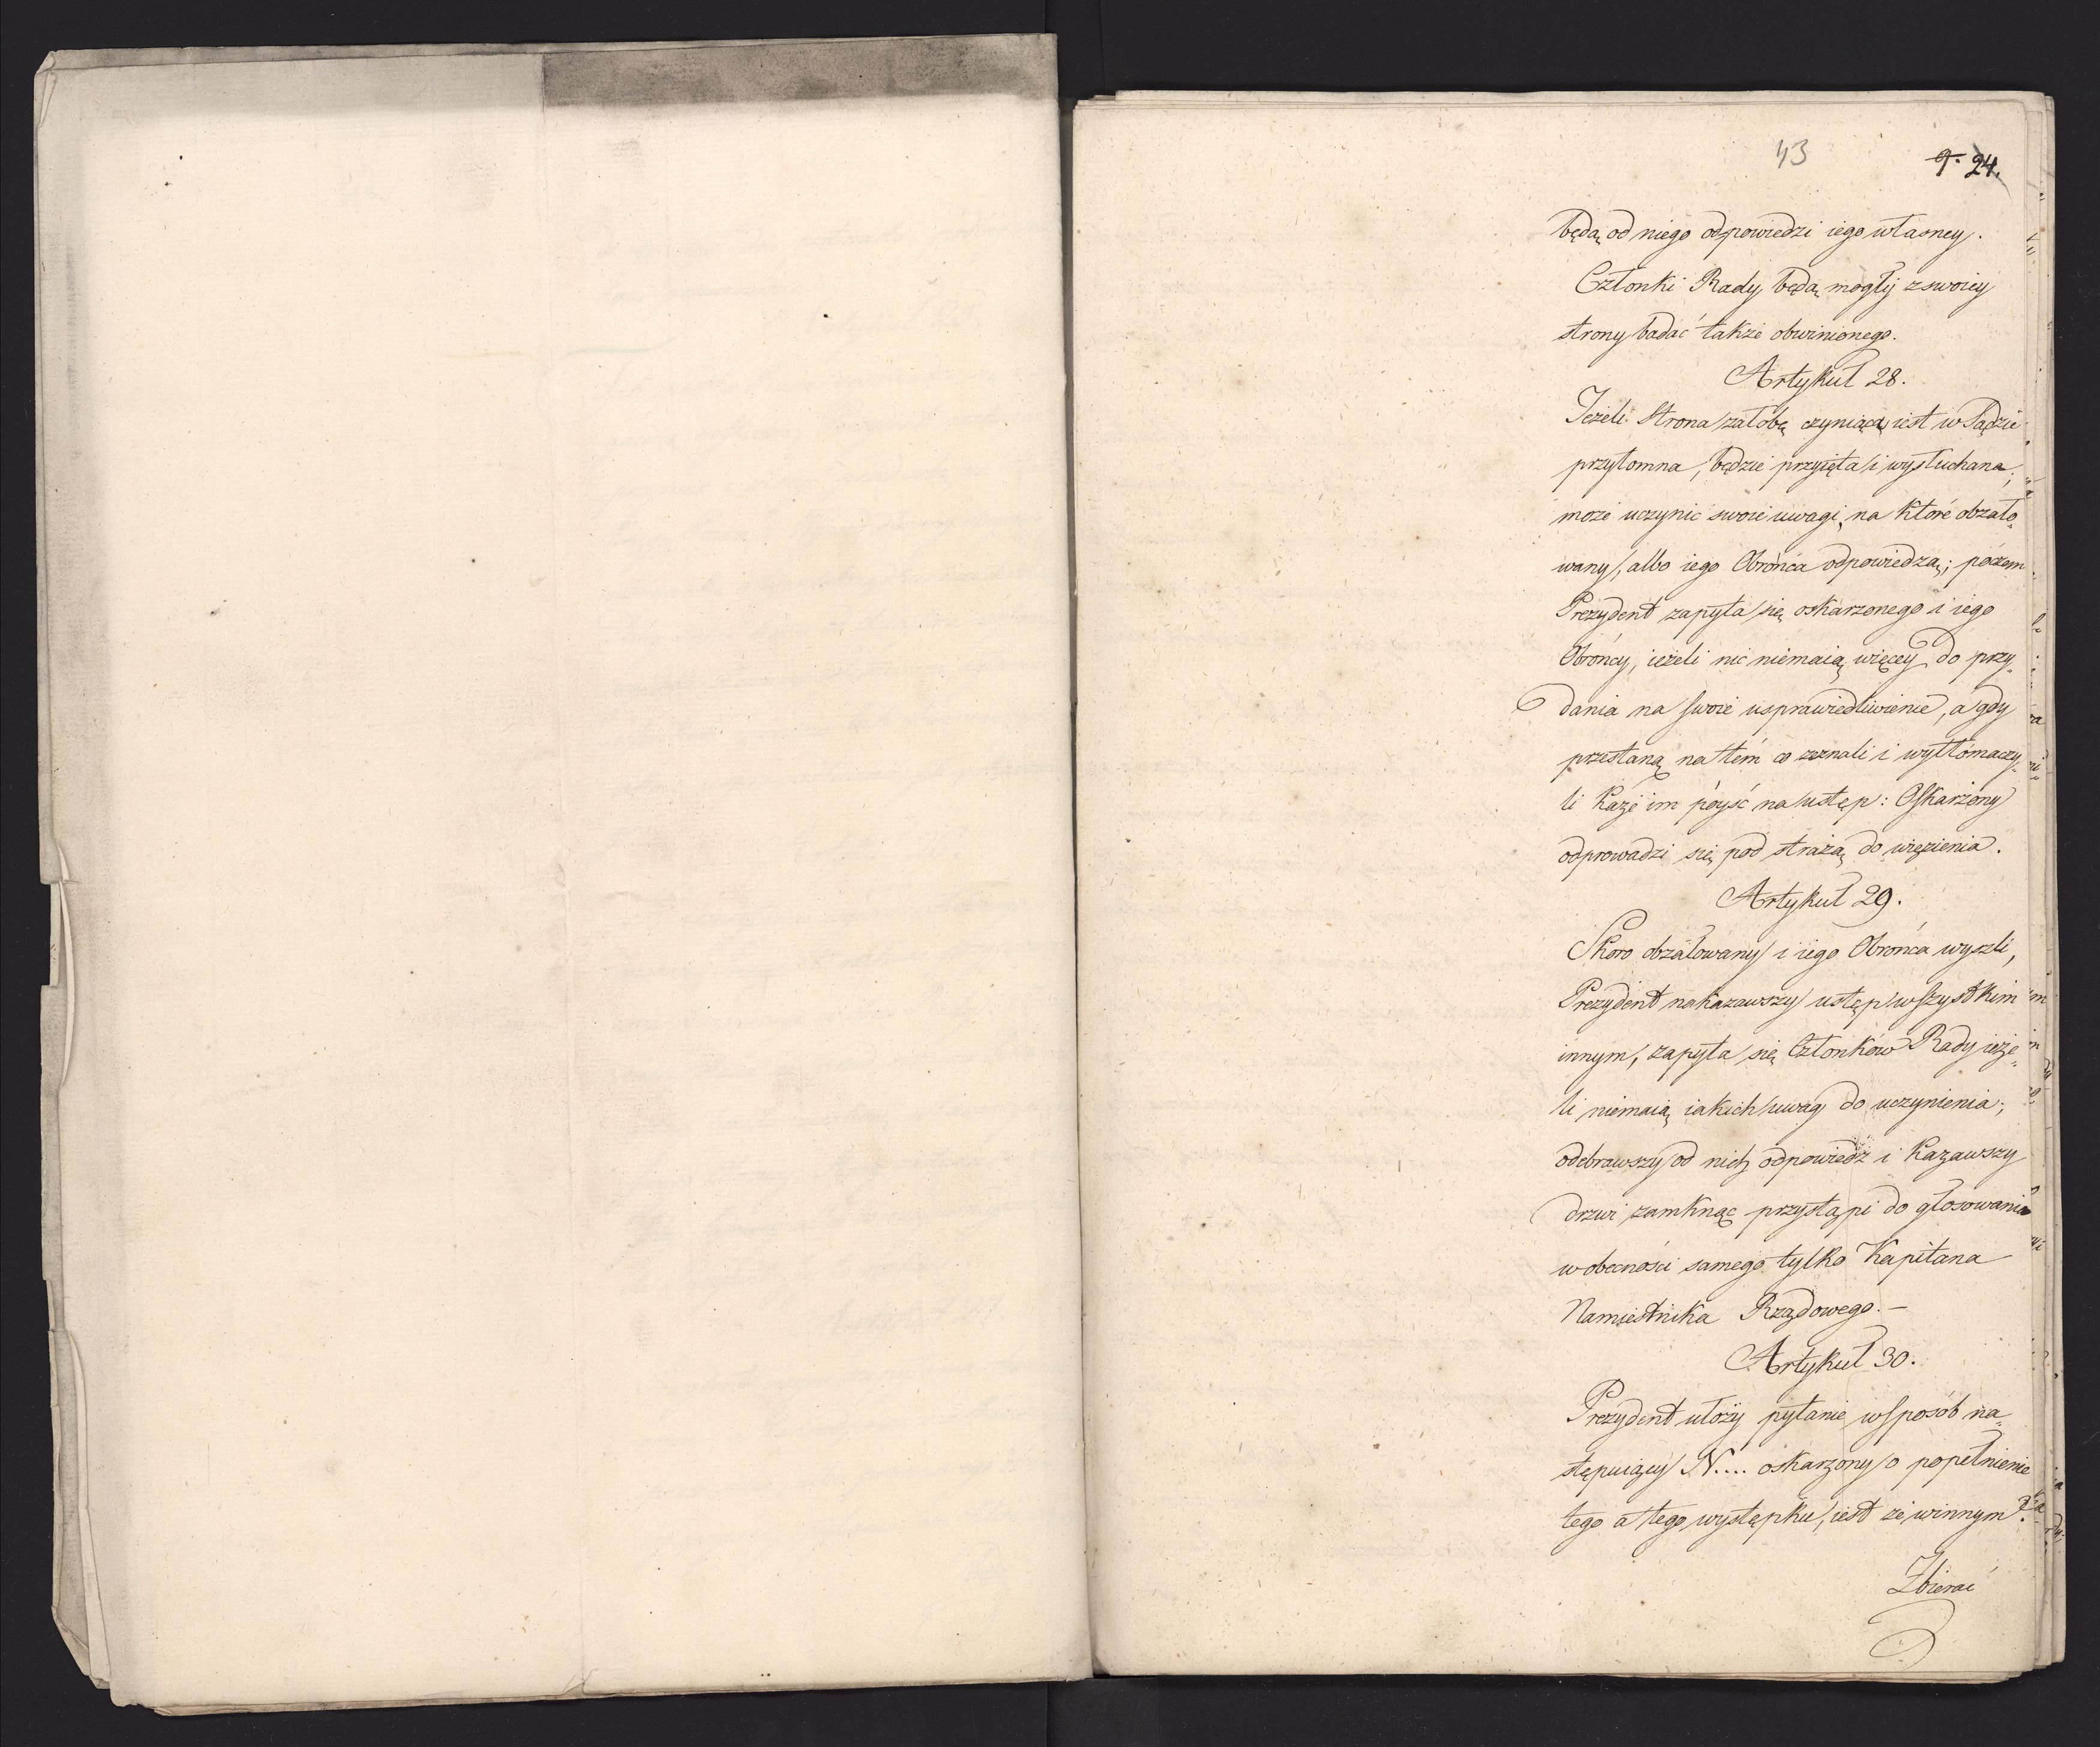 43
9. 24.
będą od niego odpowiedzi iego własney.
Członki Rady będą mogły z swoiey
strony badać także obwinionego.
Artykuł 28.
Jeżeli Strona żałobę czyniąca iest w Sądzie
przytomna, będzie przyięta i wysłuchana,
może uczynić swoie uwagi, na które obżało„
wany, albo iego Obrońca odpowiedzą; poczem
Prezydent zapyta się oskarżonego i iego
Obrońcy, ieżeli nic niemaią więcey do przy„
dania na swoie usprawiedliwienie, a gdy
przestaną na tém co zeznali i wytłómaczy„
li każe im póyść na ustęp: Oskarżony
odprowadzi się pod strażą do więzienia.
Artykuł 29.
Skoro obżałowany i iego Obrońca wyszli,
Prezydent nakazawszy ustęp wszystkim
innym, zapyta się Członków Rady ieże„
li niemaią iakich uwag do uczynienia;
odebrawszy od nich odpowiedź i kazawszy
drzwi zamknąć przystąpi do głosowania
w obecności samego tylko Kapitana
Namiestnika Rządowego. —
Artykuł 30.
Prezydent ułoży pytanie w sposób na„
stępuiący N.... oskarżony o popełnienie
tego a tego występku, iest że winnym?
Zbierać